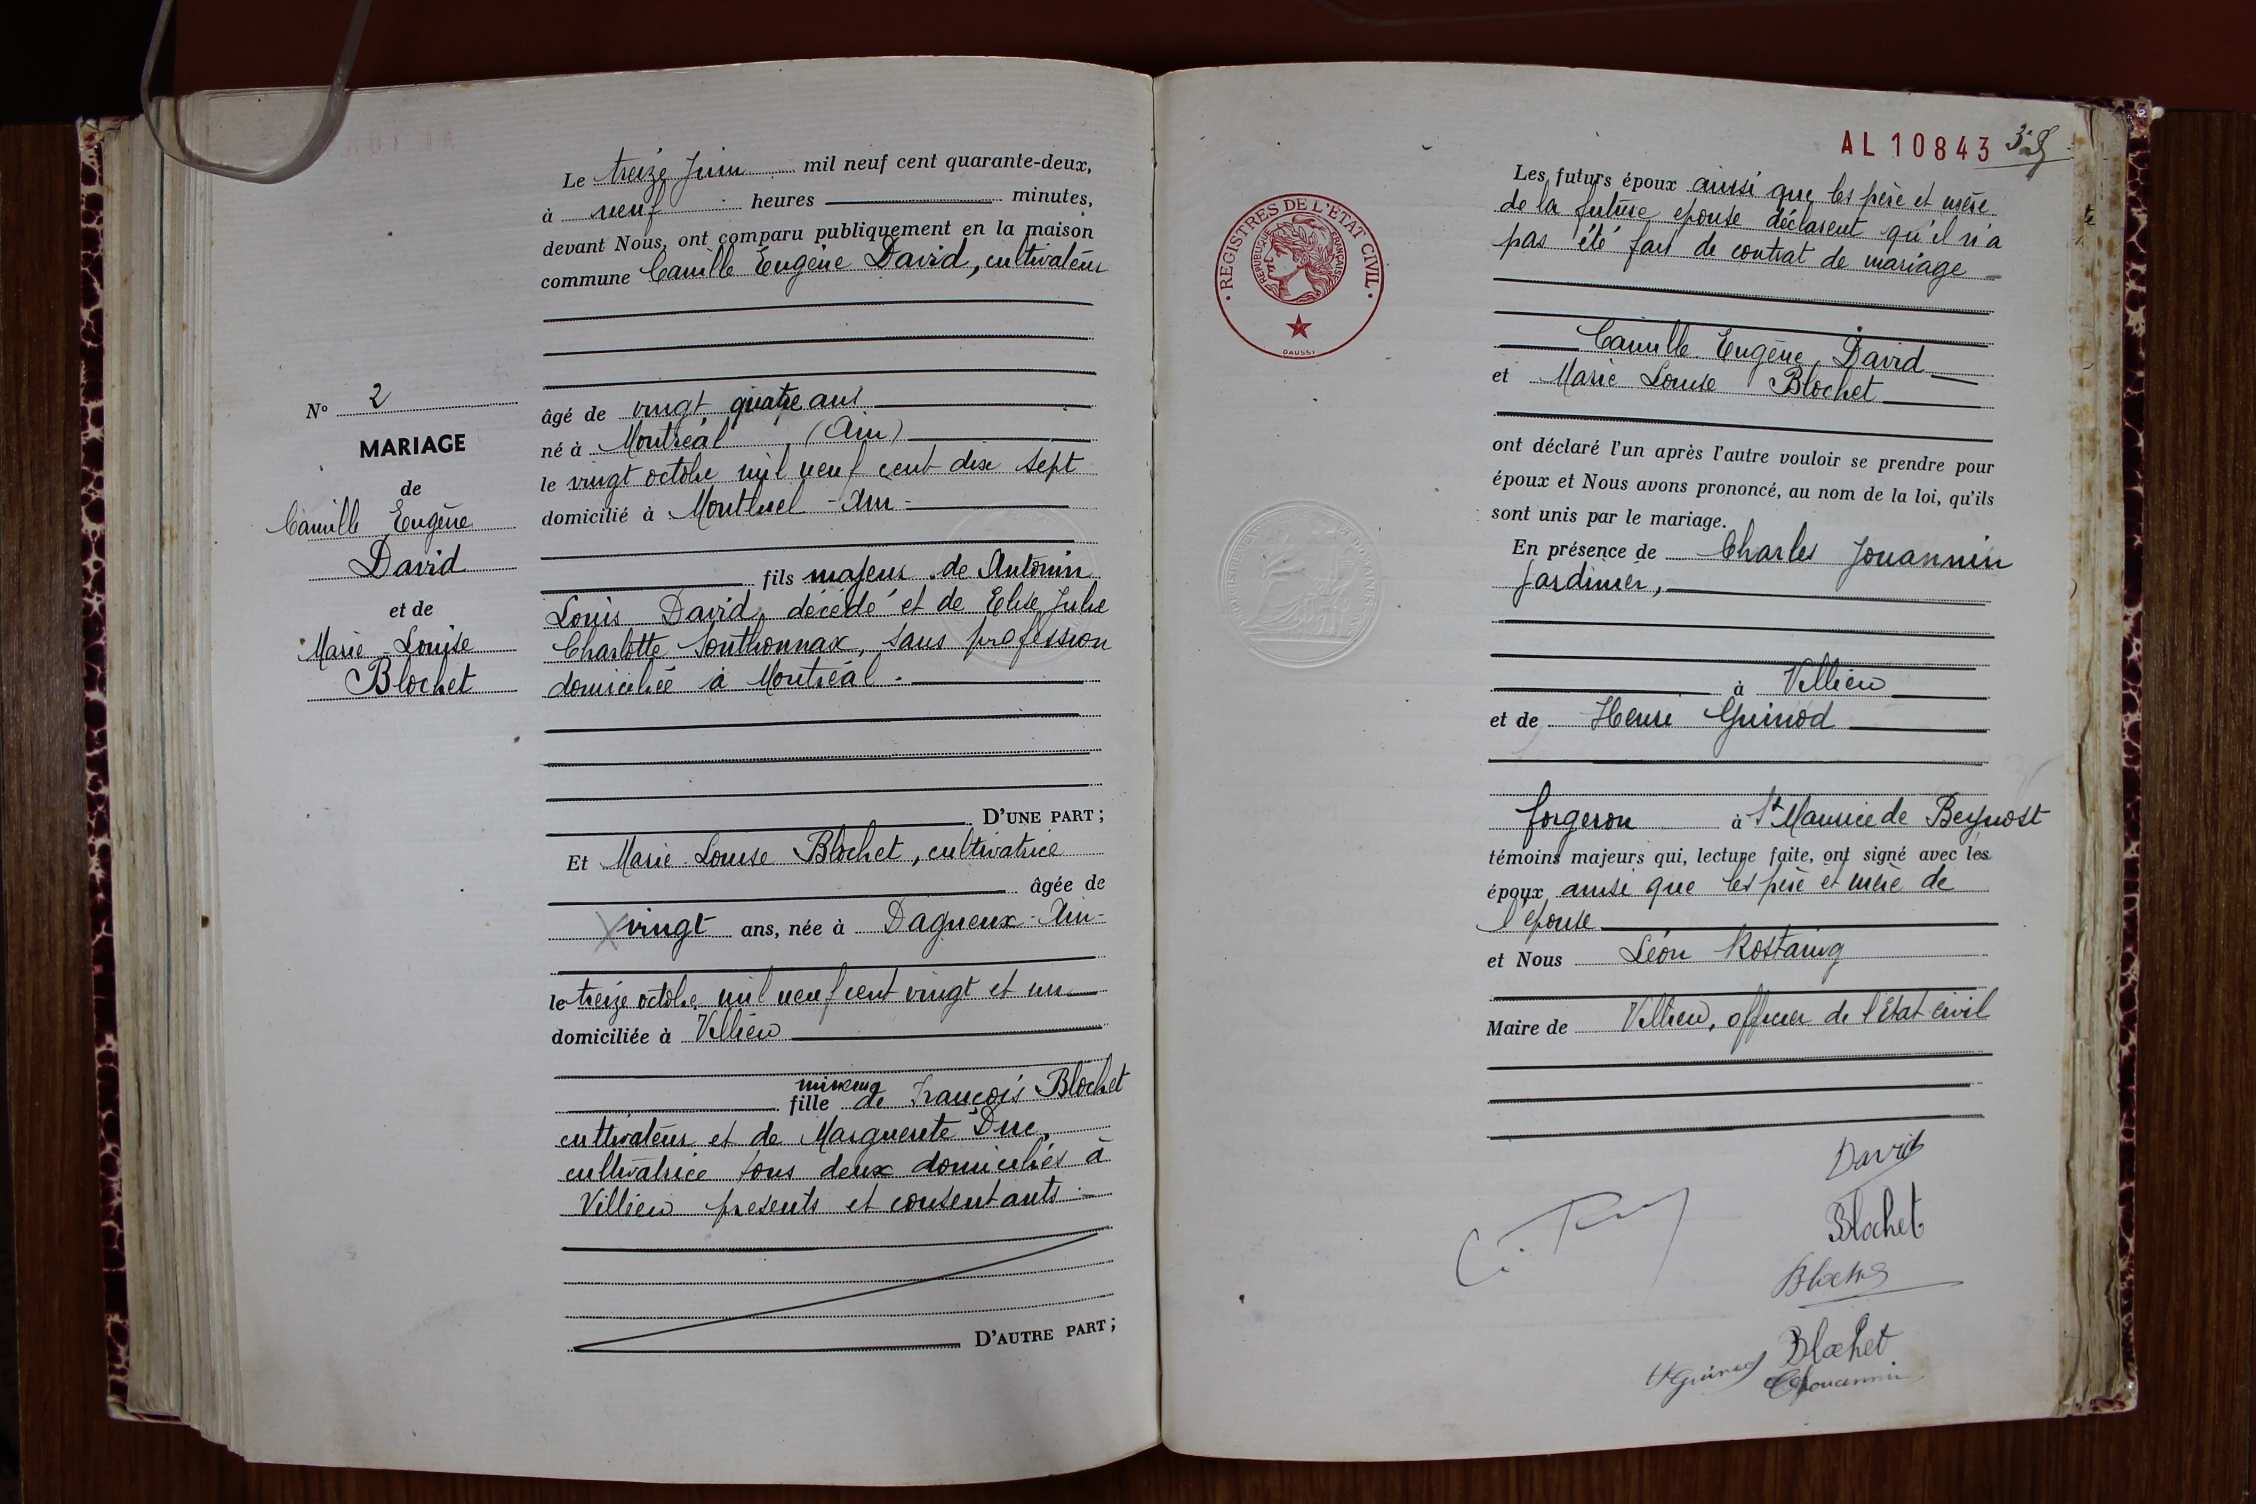 N° 2
MARIAGE
de
Camille Eugène
David
et de
Marie-Louise
Blochet
Le treize Juin mil neuf cent quarante-deux,
à neuf heures minutes,
devant Nous, ont comparu publiquement en la maison
commune Camille Eugène David, cultivateur
âgé de vingt quatre ans
né à Montréal (Ain)
le vingt octobre mil neuf cent dix sept
domicilié à Montluel - Ain -
fils majeur de Antonin
Louis David, décédé et de Elise Julie
Charlotte Southonnax, sans profession
domiciliée à Montréal.
D'UNE PART;
Et Marie-Louise Blochet, cultivatrice
âgée de
vingt ans, née à Dagneux - Ain -
le treize octobre mil neuf cent vingt et un
domiciliée à Villieu
mineure
fille de François Blochet
cultivateur et de Marguerite Duc,
cultivatrice tous deux domiciliés à
Villieu presents et consentants
D'AUTRE PART;
AL 10843
REGISTRES DE L'ETAT CIVIL
REPUBLIQUE FRANÇAISE
DAUSSY
Les futurs époux ainsi que les père et mère
de la future epouse déclarent qu'il n'a
pas été fait de contrat de mariage
Camille Eugène David
et Marie Louise Blochet
ont déclaré l'un après l'autre vouloir se prendre pour
époux et Nous avons prononcé, au nom de la loi, qu'ils
sont unis par le mariage.
En présence de Charles Jouannin
Jardinier,
à Villieu
et de Henri Guinod
forgeron à St Maurice de Beynost
témoins majeurs qui, lecture faite, ont signé avec les
époux ainsi que les père et mère de
l'épouse
et Nous Léon Rostaing
Maire de Villieu, officier de l'Etat civil
David
Blochet
Blochet
Blochet
H Guinod
C Jouannin